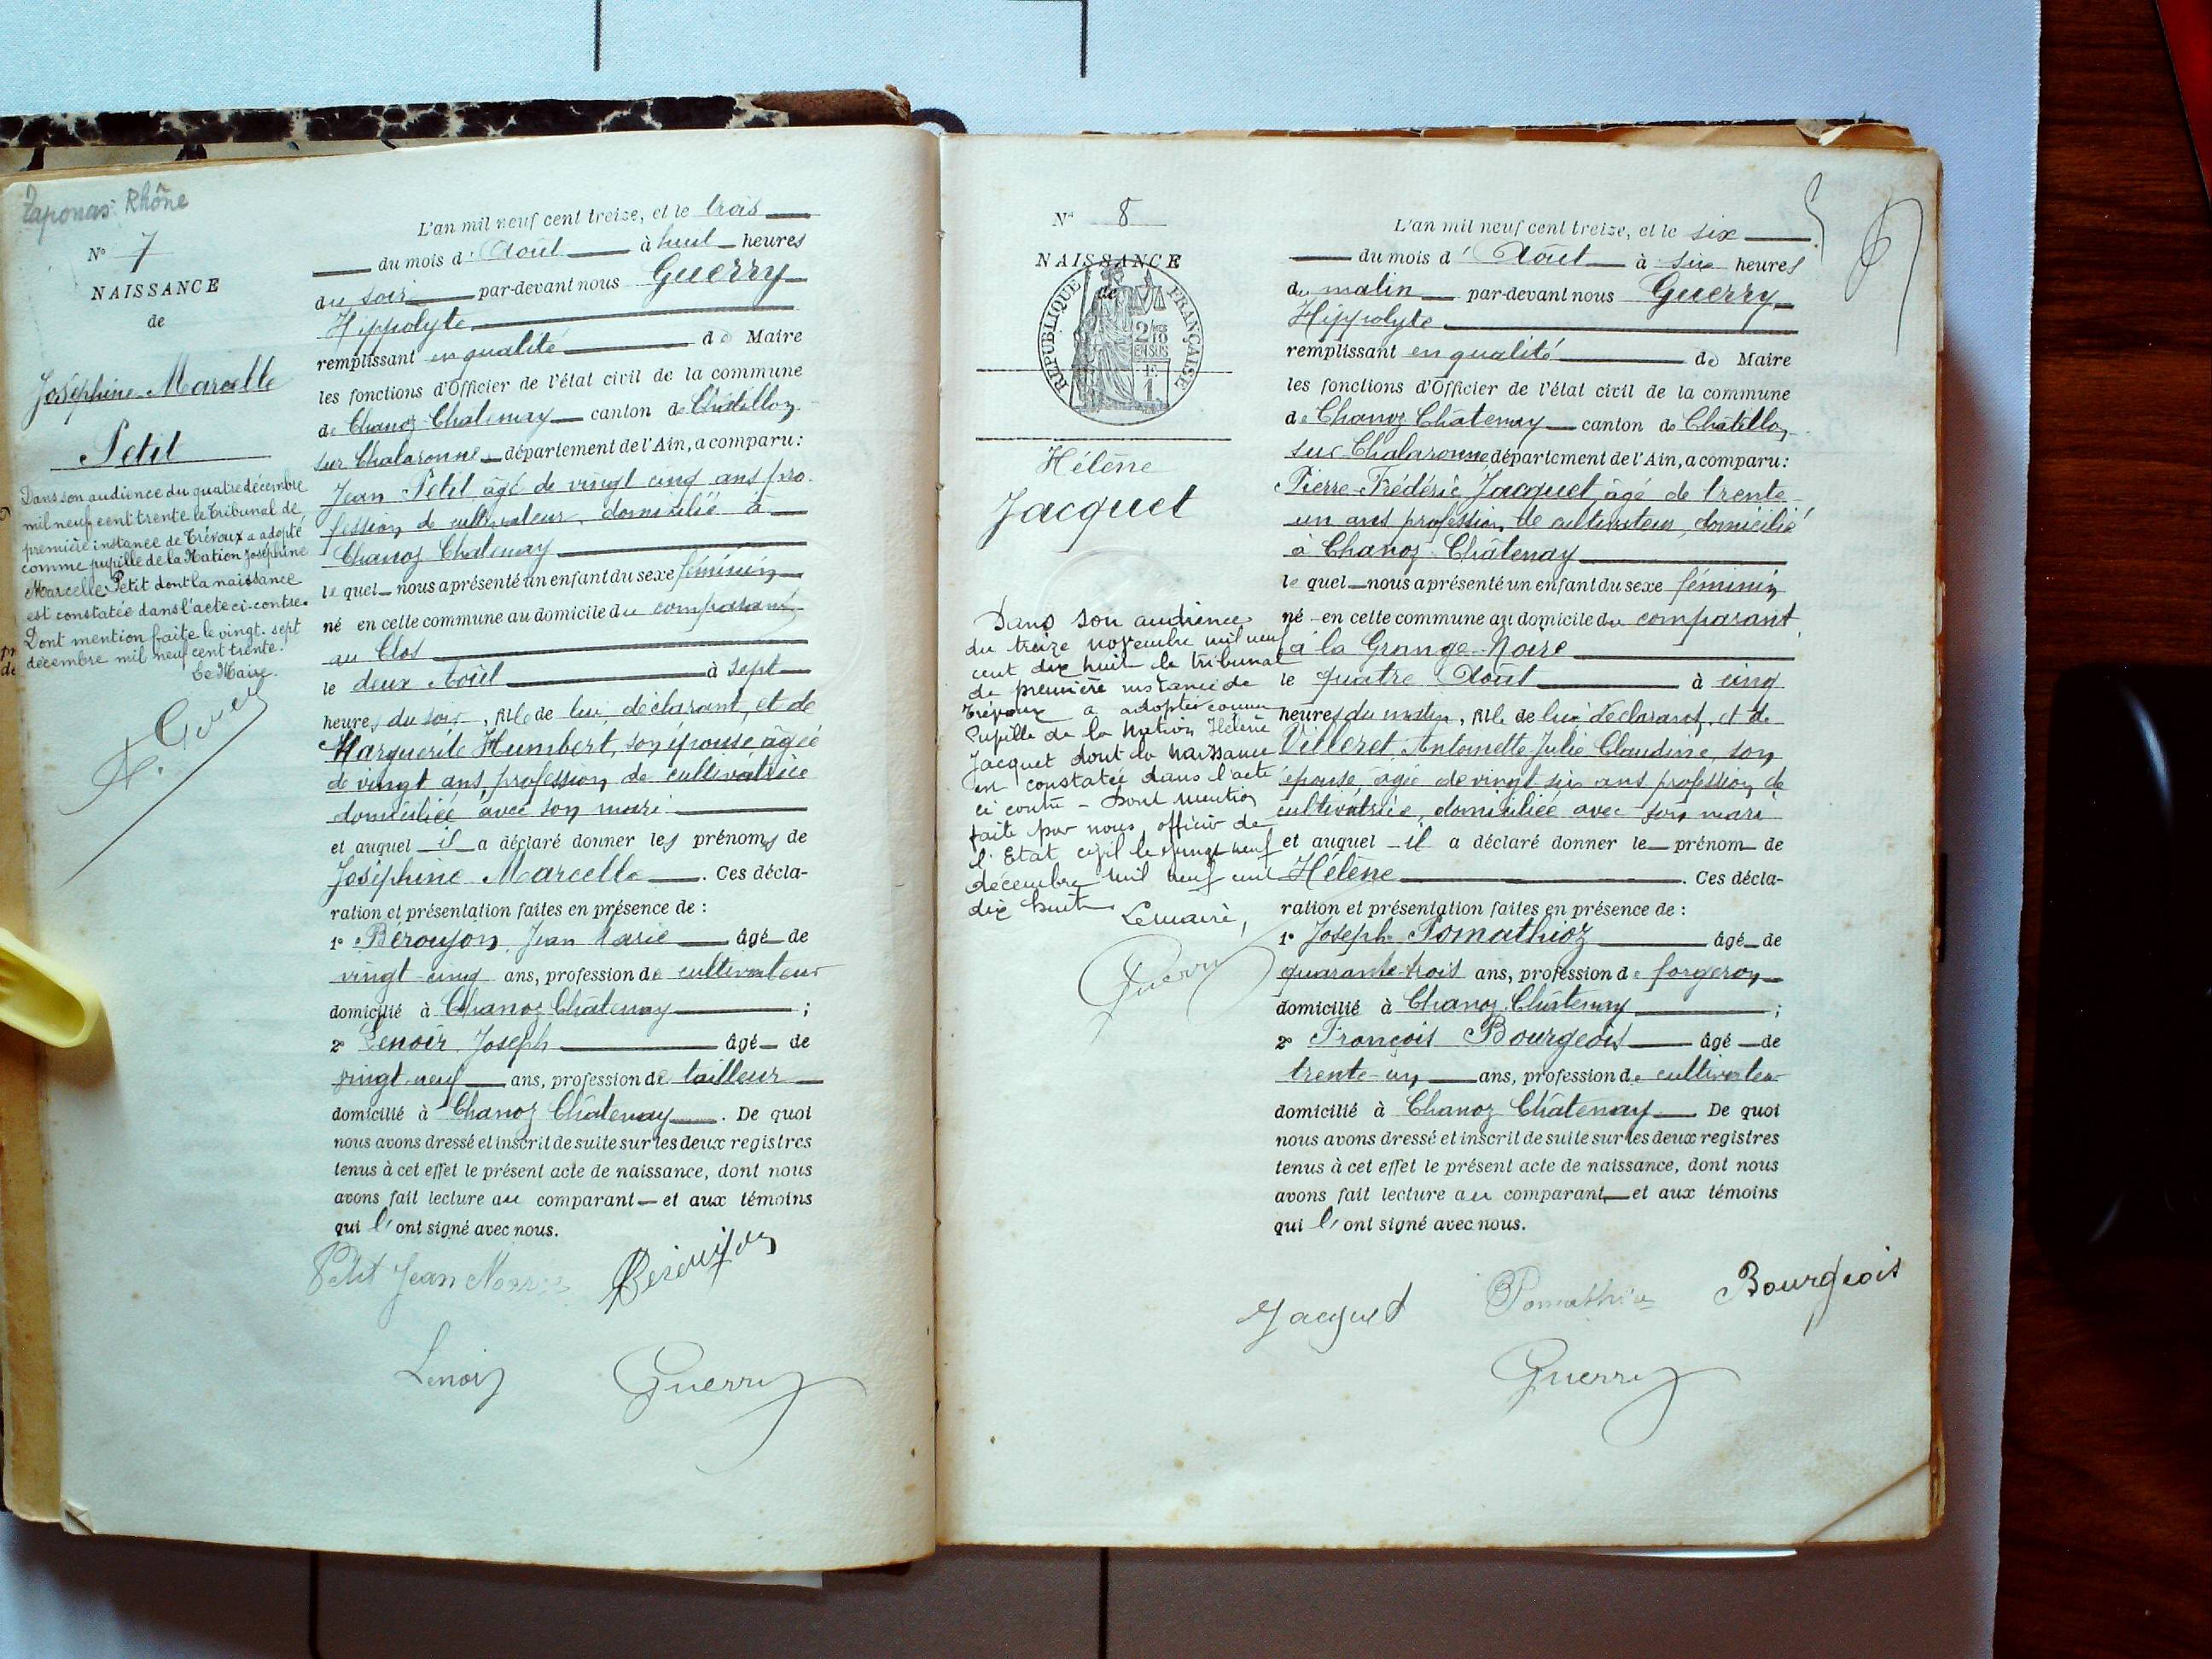 Taponas Rhône
N° 7
NAISSANCE
de
Joséphine Marcelle
Petit
Dans son audience du quatre décembre
mil neuf cent trente le Tribunal de
première instance de Trévoux a adopté
comme pupille de la Nation Joséphine
Marcelle Petit dont la naissance
est constatée dans l'acte ci-contre.
Dont mention faite le vingt-sept
décembre mil neuf cent trente.
Le Maire.
L'an mil neuf cent treize, et le trois
du mois d'Août à huit heures
du soir par-devant nous Guerry
Hippolyte
remplissant en qualité de Maire
les fonctions d'Officier de l'état civil de la commune
de Chanoz-Chatenay canton de Châtillon
sur Chalaronne département de l'Ain, a comparu:
Jean Petit, âgé de vingt cinq ans pro-
fession de cultivateur, domicilié à
Chanoz Chatenay
le quel nous a présenté un enfant du sexe féminin
né en cette commune au domicile du comparant
au Clos
le deux Août à sept
heures du soir, fille de lui, déclarant, et de
Marguerite Humbert, son épouse âgée
de vingt ans, profession de cultivatrice
domiciliée avec son mari
et auquel il a déclaré donner les prénoms de
Joséphine Marcelle. Ces décla-
ration et présentation faites en présence de :
1° Béroujon Jean Marie âgé de
vingt cinq ans, profession de cultivateur
domicilié à Chanoz Châtenay ;
2° Lenoir Joseph âgé de
vingt-neuf ans, profession de tailleur
domicilié à Chanoz Châtenay. De quoi
nous avons dressé et inscrit de suite sur les deux registres
tenus à cet effet le présent acte de naissance, dont nous
avons fait lecture au comparant et aux témoins
qui l'ont signé avec nous.
Petit Jean Béroujon
Lenoir Guerry
N° 8
NAISSANCE
de
RÉPUBLIQUE FRANÇAISE
2/10
EN SUS
1
Hélène
Jacquet
Dans son audience
du treize novembre mil neuf
cent dix huit le tribunal
de première instance de
Trévoux a adopté comme
Pupille de la Nation Hélène
Jacquet dont la naissance
est constatée dans l'acte
ci contre - Dont mention
faite par nous, officier de
l'Etat civil le vingt neuf
décembre mil neuf cent
dix huit
Le maire,
Guerry
L'an mil neuf cent treize, et le six
du mois d'Août à six heures
du matin par-devant nous Guerry
Hippolyte
remplissant en qualité de Maire
les fonctions d'Officier de l'état civil de la commune
de Chanoz Châtenay canton de Châtillon
sur Chalaronne département de l'Ain, a comparu:
Pierre-Frédéric Jacquet, âgé de trente
un ans, profession de cultivateur, domicilié
à Chanoz-Châtenay
le quel nous a présenté un enfant du sexe féminin
né en cette commune au domicile du comparant
à la Grange-Noire
le quatre Août à cinq
heures du matin, fille de lui déclarant, et de
Villeret Antoinette Julie Claudine, son
épouse, âgée de vingt six ans, profession de
cultivatrice, domiciliée avec son mari
et auquel il a déclaré donner le prénom de
Hélène. Ces décla-
ration et présentation faites en présence de :
1° Joseph Pomathioz âgé de
quarante-trois ans, profession de forgeron
domicilié à Chanoz-Châtenay ;
2° François Bourgeois âgé de
trente-un ans, profession de cultivateur
domicilié à Chanoz Châtenay De quoi
nous avons dressé et inscrit de suite sur les deux registres
tenus à cet effet le présent acte de naissance, dont nous
avons fait lecture au comparant et aux témoins
qui l'ont signé avec nous.
Jacquet Pomathioz Bourgeois
Guerry